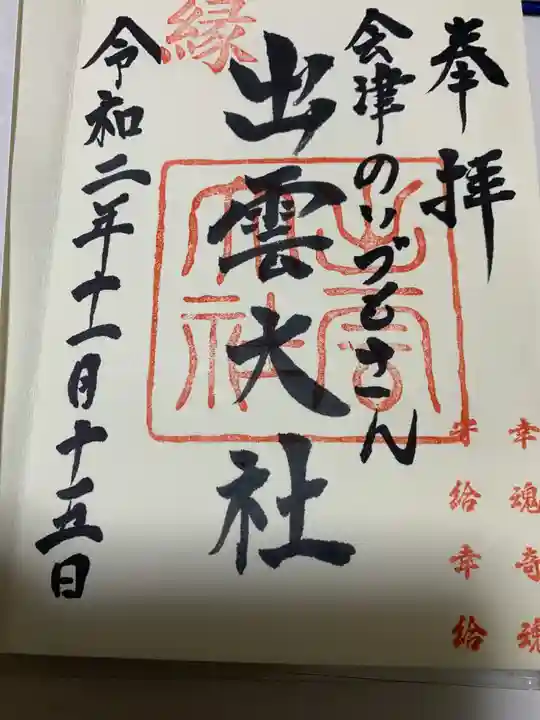 奉拝
会津のいづもさん
縁
出雲大社
令和二年十一月十五日
幸魂奇魂
守給幸給
出雲
大社